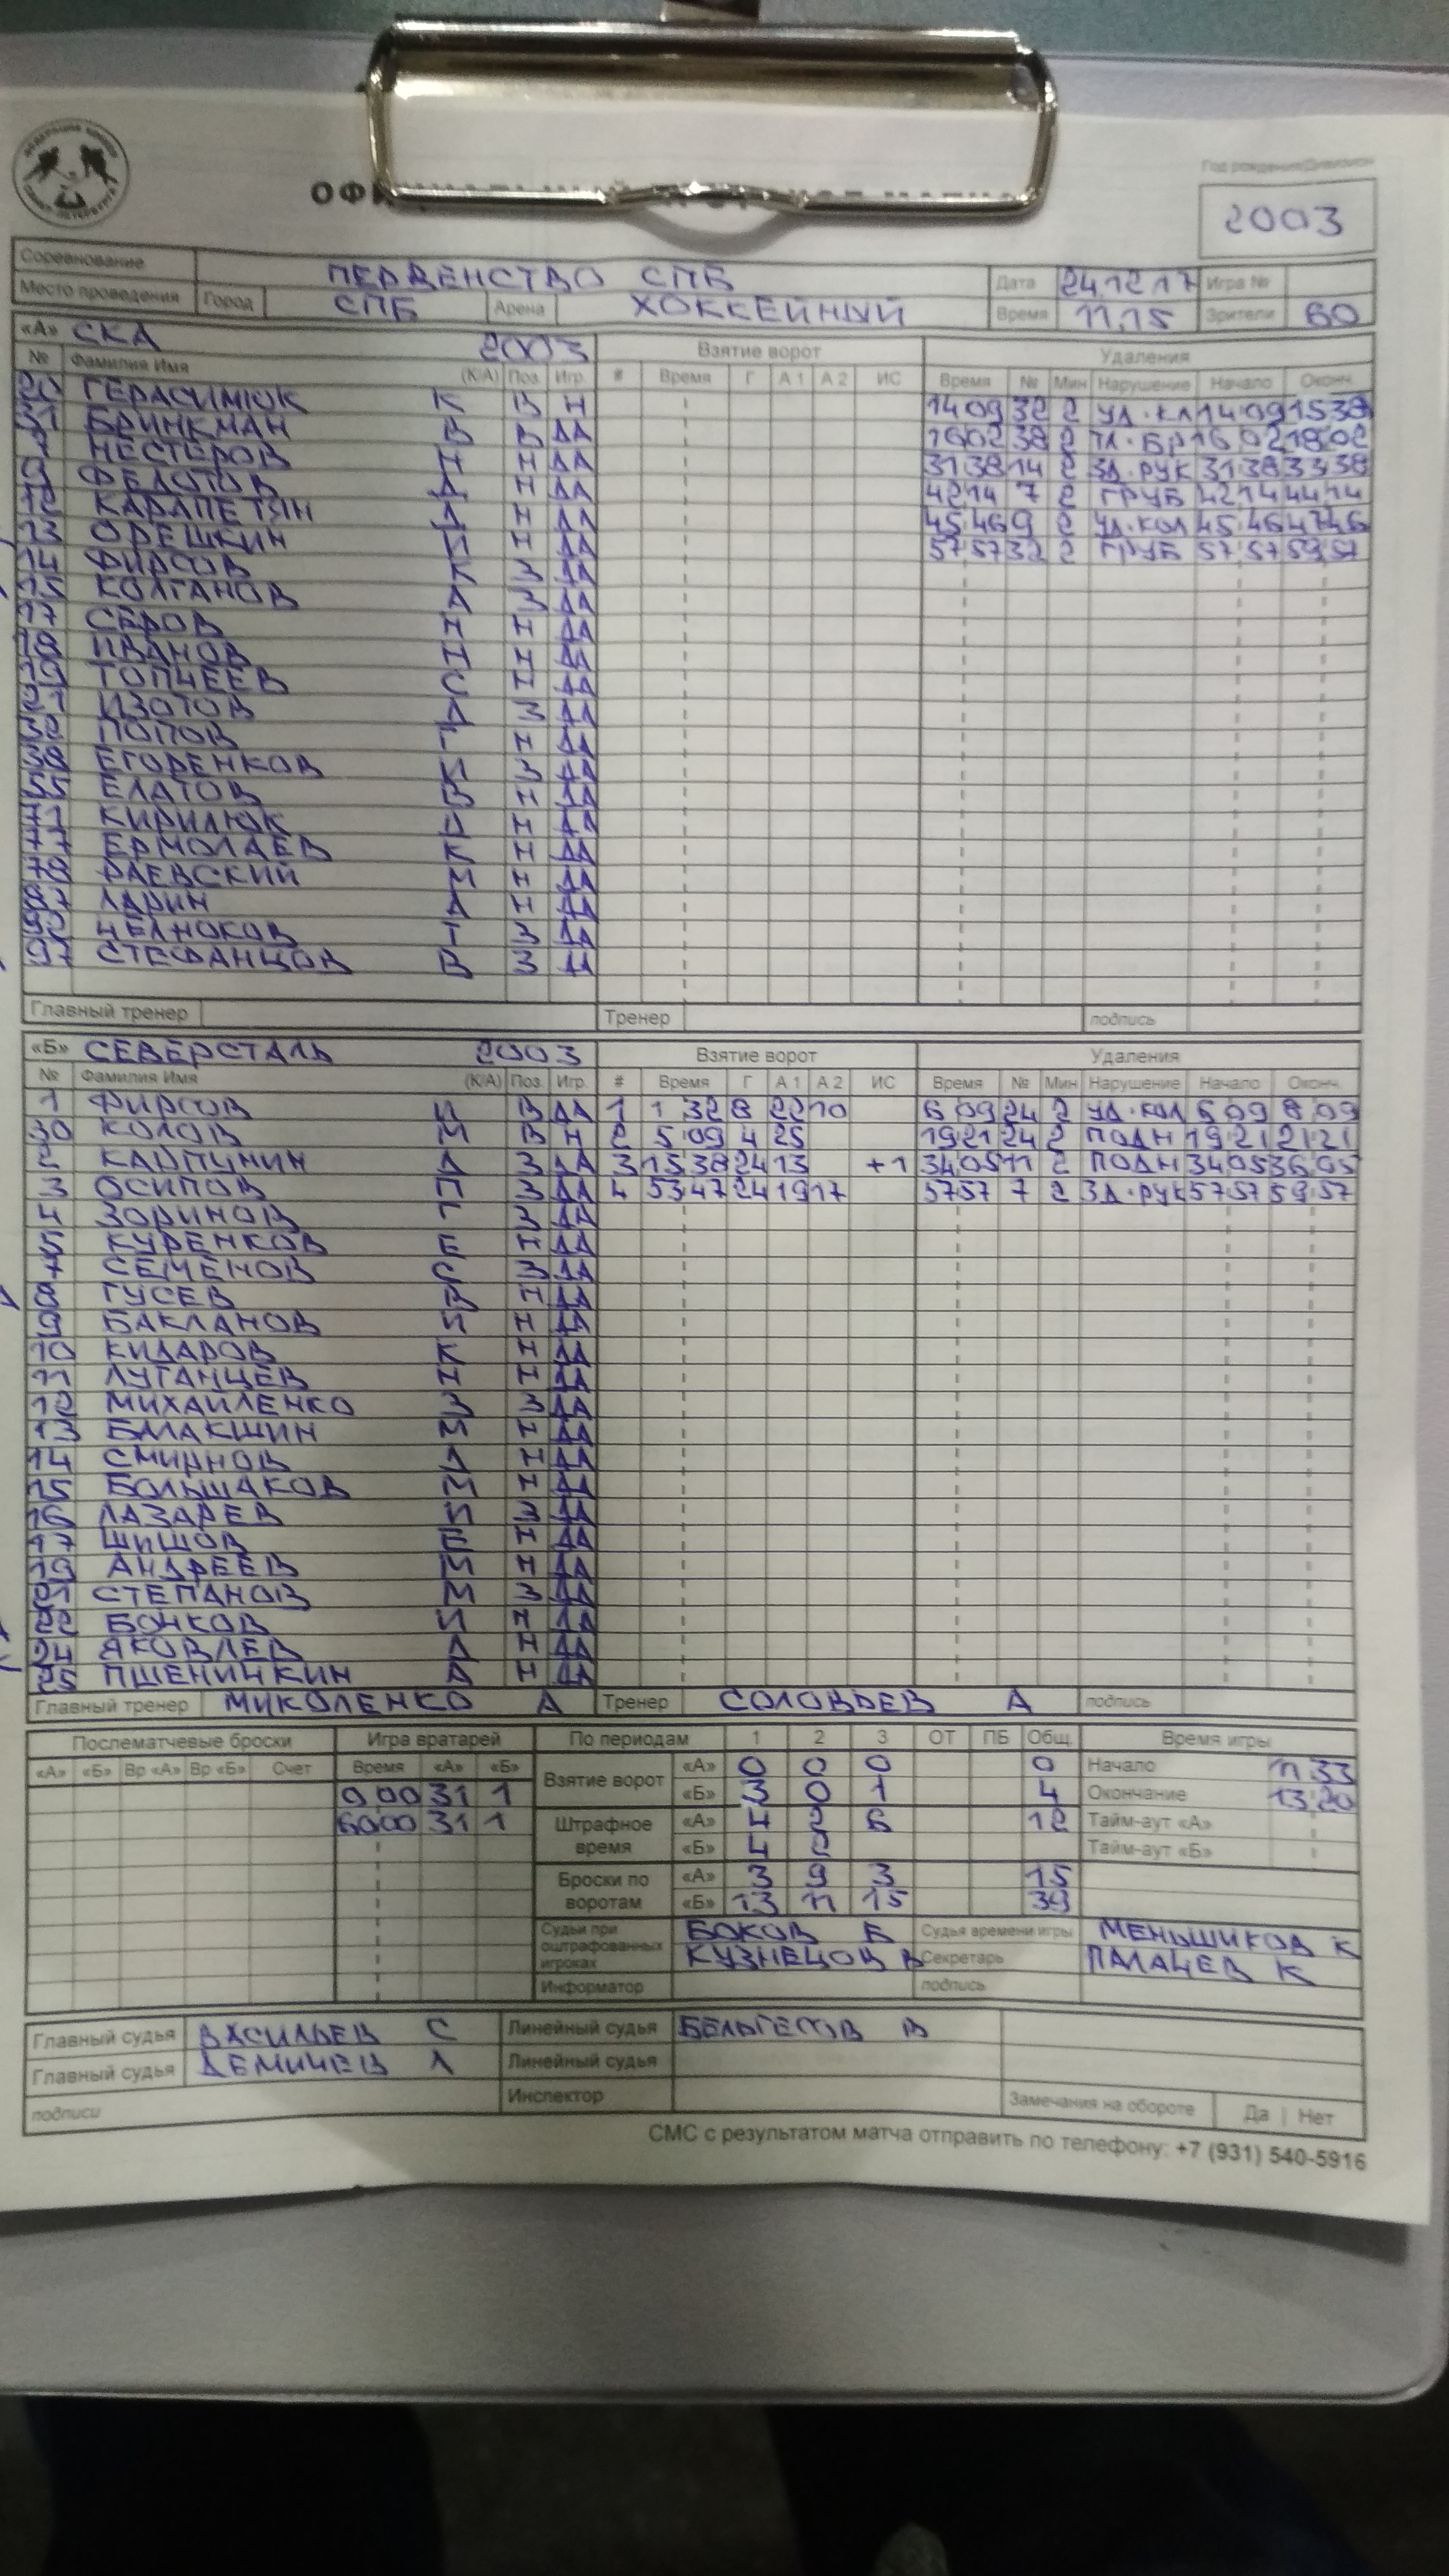 Год рождения/Дивизион
2003
Соревнование ПЕРВЕНСТВО СПБ Дата 24 12 17 Игра №
Место проведения Город СПБ Арена ХОККЕЙНЫЙ Время 11.15 Зрители 60
«А» СКА 2003 Взятие ворот Удаления
№ Фамилия Имя (К/А) Поз. Игр. # Время Г А 1 А 2 ИС Время № Мин Нарушение Начало Оконч.
20 ГЕРАСИМЮК К В Н 14 09 32 2 УД.КЛ 14 09 15 38
31 БРИНКМАН В В ДА 16 02 38 2 ТЛ.БР 16 02 18 02
НЕСТЕРОВ Н Н ДА 31 38 14 2 ЗД.РУК 31 38 33 38
9 ФЕДОТОВ Д Н ДА 42 14 7 2 ГРУБ 42 14 44 14
12 КАРАПЕТЯН Д Н ДА 45 46 9 2 УД.КОЛ 45 46 47 46
13 ОРЕШКИН И Н ДА 57 57 32 2 ГРУБ 57 57 59 57
14 ФИРСОВ К З ДА
15 КОЛГАНОВ А З ДА
17 СЕРОВ Н Н ДА
18 ИВАНОВ Н Н ДА
19 ТОПЧЕЕВ С Н ДА
21 ИЗОТОВ Д З ДА
32 ПОПОВ Г Н ДА
38 ЕГОРЕНКОВ И З ДА
55 ЕЛАТОВ В Н ДА
71 КИРИЛЮК Н ДА
77 ЕРМОЛАЕВ К Н ДА
78 РАЕВСКИЙ М Н ДА
87 ЛАРИН А Н ДА
92 ЧЕЛНОКОВ Т З ДА
97 СТЕФАНЦОВ В З ДА
Главный тренер Тренер подпись
«Б» СЕВЕРСТАЛЬ 2003 Взятие ворот Удаления
№ Фамилия Имя (К/А) Поз. Игр. # Время Г А 1 А 2 ИС Время № Мин Нарушение Начало Оконч.
1 ФИРСОВ И В ДА 1 1 32 8 22 10 6 09 24 2 УД.КОЛ 6 09 8 09
30 КОЛОВ М В Н 2 5 09 4 25 19 21 24 2 ПОДН 19 21 21 21
2 КАРПУНИН Д З ДА 3 15 38 24 13 +1 34 05 11 2 ПОДН 34 05 36 05
3 ОСИПОВ П З ДА 4 53 47 24 19 17 57 57 7 2 ЗД.РУК 57 57 59 57
4 ЗОРИНОВ Г З ДА
5 КУРЕНКОВ Е Н ДА
7 СЕМЕНОВ С З ДА
8 ГУСЕВ В Н ДА
9 БАКЛАНОВ И Н ДА
10 КИДАРОВ К Н ДА
11 ЛУГАНЦЕВ Н Н ДА
12 МИХАЙЛЕНКО З З ДА
13 БАЛАКШИН М Н ДА
14 СМИРНОВ Д Н ДА
15 БОЛЬШАКОВ М Н ДА
16 ЛАЗАРЕВ И З ДА
17 ШИШОВ Е Н ДА
19 АНДРЕЕВ М Н ДА
21 СТЕПАНОВ М З ДА
22 БОЧКОВ И Н ДА
24 ЯКОВЛЕВ Д Н ДА
25 ПШЕНИЧКИН А Н ДА
Главный тренер МИКОЛЕНКО А Тренер СОЛОВЬЕВ А подпись
Послематчевые броски Игра вратарей По периодам 1 2 3 ОТ ПБ Общ. Время игры
«А» «Б» Вр «А» Вр «Б» Счет Время «А» «Б» Взятие ворот «А» 0 0 0 0 Начало 11 33
0 00 31 1 «Б» 3 0 1 4 Окончание 13 20
60 00 31 1 Штрафное время «А» 4 2 6 12 Тайм-аут «А»
«Б» 4 2 Тайм-аут «Б»
Броски по воротам «А» 3 9 3 15
«Б» 13 11 15 39
Судьи при оштрафованных игроках БОКОВ Б Судья времени игры МЕНЬШИКОВ К
КУЗНЕЦОВ В Секретарь ПАЛАЧЕВ К
Информатор подпись
Главный судья ВАСИЛЬЕВ С Линейный судья БЕЛЬГЕСОВ В
Главный судья ДЕМИЧЕВ А Линейный судья
подписи Инспектор Замечания на обороте Да | Нет
СМС с результатом матча отправить по телефону: +7 (931) 540-5916